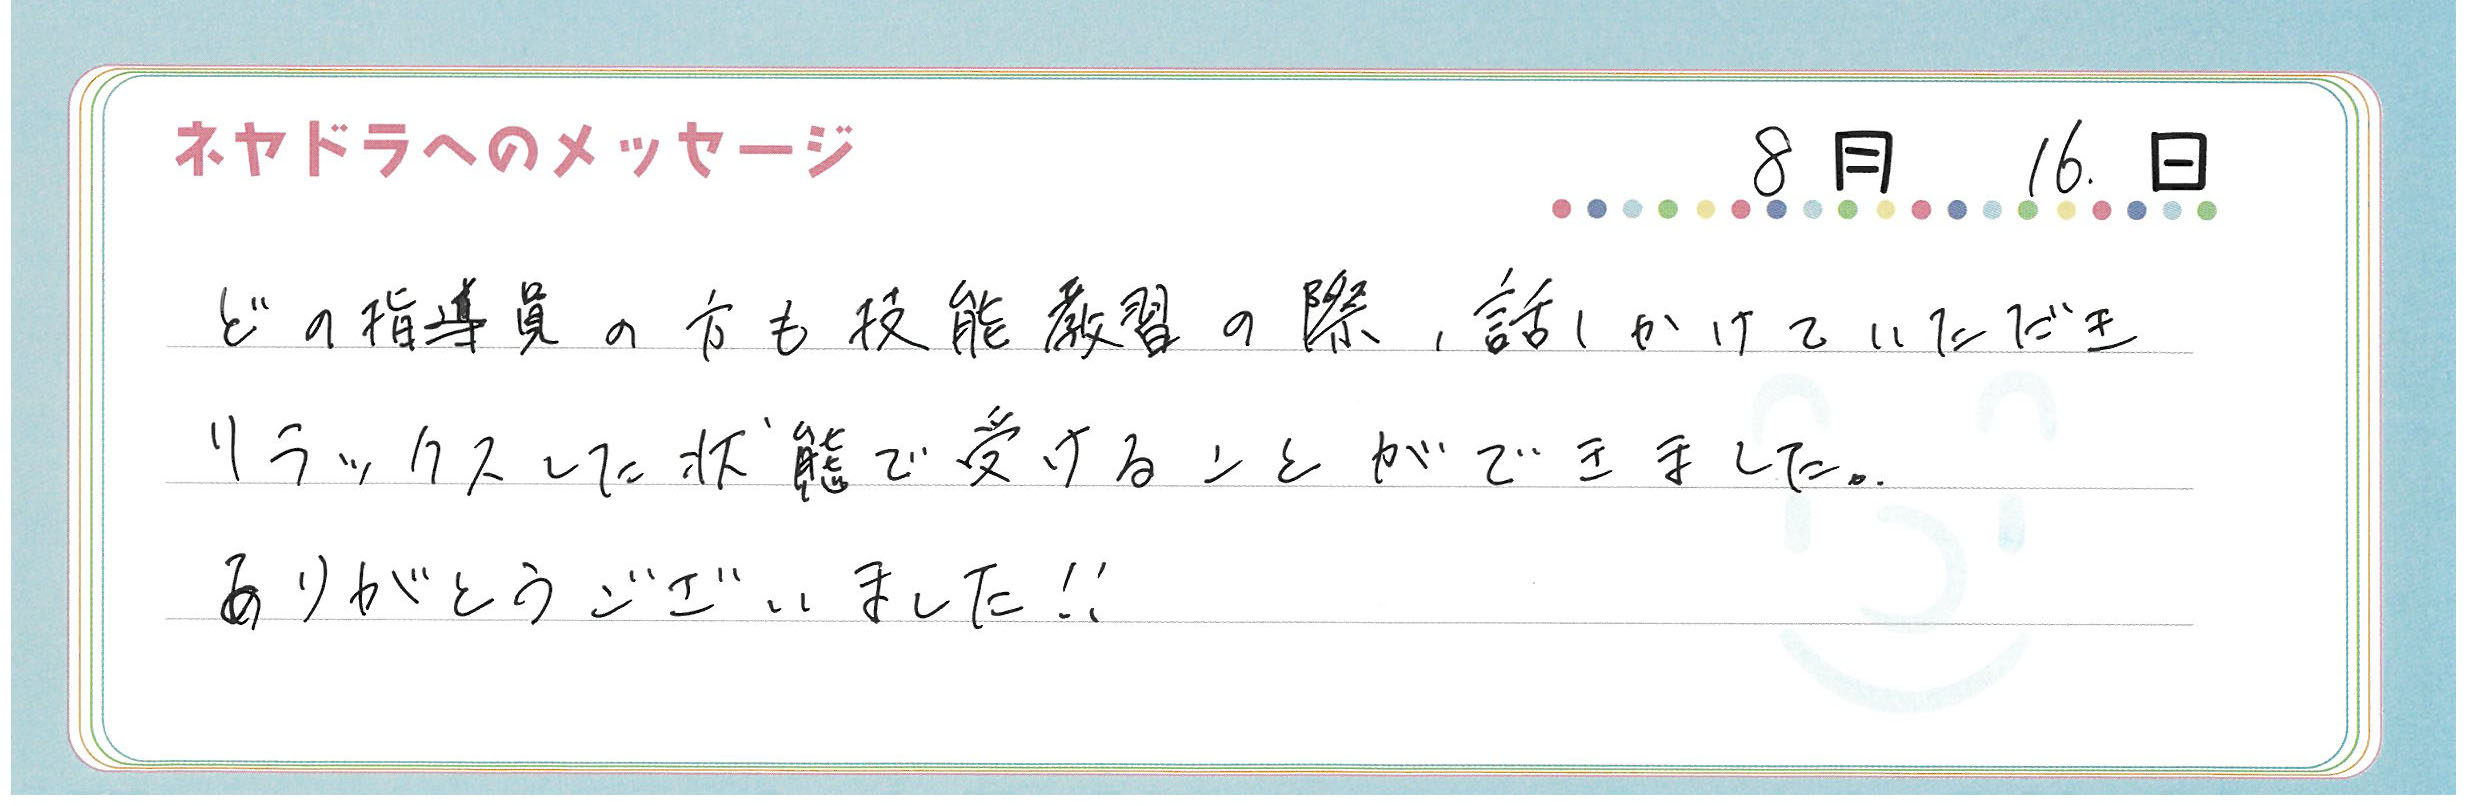 ネヤドラへのメッセージ
8月 16.日
どの指導員の方も技能教習の際、話しかけていただき
リラックスした状態で受けることができました。
ありがとうございました!!